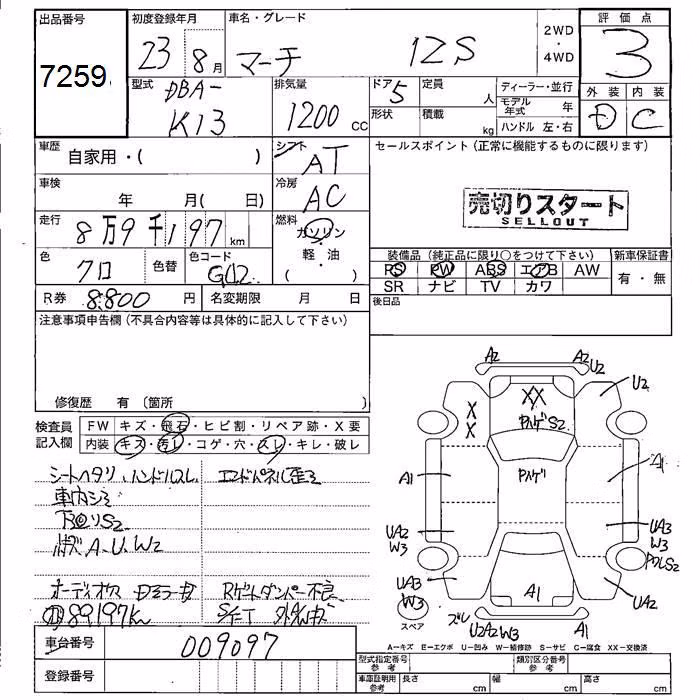 出品番号 初度登録年月 車名・グレード 2WD・4WD 評価点
7259 23 8月 マーチ 12S 3
型式 DBA-K13 排気量 1200cc ドア 5 定員 人 ディーラー・並行 外装 内装
形状 積載 kg モデル年式 年 D C
ハンドル 左・右
車歴 自家用・( ) シフト AT セールスポイント(正常に機能するものに限ります)
車検 年 月( 日) 冷房 AC
売切りスタート
SELLOUT
走行 8万9千197km 燃料 ガソリン・軽・油 ( )
色 クロ 色替 色コード G42
装備品(純正品に限り○をつけて下さい) 新車保証書
PS PW ABS エアB AW 有・無
SR ナビ TV カワ
R券 8,800円 名変期限 月 日 後日品
注意事項申告欄(不具合内容等は具体的に記入して下さい)
修復歴 有(箇所 )
検査員記入欄 FW キズ・飛石・ヒビ割・リペア跡・X要
内装 キズ・汚れ・コゲ・穴・スレ・キレ・破レ
シートヘタリ ハンドルスレ エンドパネル歪ミ
車内シミ
下回りS2
小キズA.U.W2
オーディオ欠 Dミラーキズ Rゲートダンパー不良
89197km
車台番号 009097
登録番号
A2 A2 U2
XX
X
X
ワレ S2
U2
A1 A1
UA2
W3
UA3
W3
A1
UA2
W3
S2
UA2
スペア
ズレ
U2A2W3
A1
A=キズ E=エクボ U=凹み W=補修跡 S=サビ C=腐食 XX=交換済
型式指定番号 参考 類別区分番号 参考
車庫証明用 参考 長さ cm 幅 cm 高さ cm